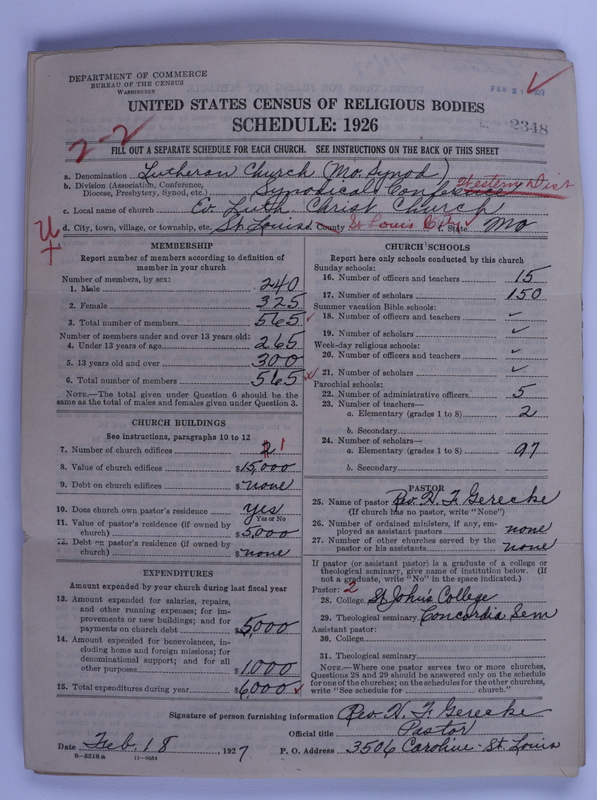 DEPARTMENT OF COMMERCE
BUREAU OF THE CENSUS
WASHINGTON
FEB 21 1927
UNITED STATES CENSUS OF RELIGIOUS BODIES
SCHEDULE: 1926
2348
2-2
FILL OUT A SEPARATE SCHEDULE FOR EACH CHURCH. SEE INSTRUCTIONS ON THE BACK OF THIS SHEET
a. Denomination Lutheran Church (Mo. Synod)
b. Division (Association, Conference, Diocese, Presbytery, Synod, etc.) Synodical Conference Western Dist
c. Local name of church Ev. Luth. Christ Church
d. City, town, village, or township, etc. St. Louis County St Louis City State Mo
U
MEMBERSHIP
Report number of members according to definition of
member in your church
Number of members, by sex:
1. Male 240
2. Female 325
3. Total number of members 565
Number of members under and over 13 years old:
4. Under 13 years of age 265
5. 13 years old and over 300
6. Total number of members 565
NOTE.—The total given under Question 6 should be the
same as the total of males and females given under Question 3.
CHURCH BUILDINGS
See instructions, paragraphs 10 to 12
7. Number of church edifices 2 1
8. Value of church edifices $15,000
9. Debt on church edifices $none
10. Does church own pastor's residence? yes
Yes or No
11. Value of pastor's residence (if owned by
church) $5,000
12. Debt on pastor's residence (if owned by
church) $none
EXPENDITURES
Amount expended by your church during last fiscal year
13. Amount expended for salaries, repairs,
and other running expenses; for im-
provements or new buildings; and for
payments on church debt $5,000
14. Amount expended for benevolences, in-
cluding home and foreign missions; for
denominational support; and for all
other purposes $1,000
15. Total expenditures during year $6,000
CHURCH SCHOOLS
Report here only schools conducted by this church
Sunday schools:
16. Number of officers and teachers 15
17. Number of scholars 150
Summer vacation Bible schools:
18. Number of officers and teachers
19. Number of scholars
Week-day religious schools:
20. Number of officers and teachers
21. Number of scholars
Parochial schools:
22. Number of administrative officers 5
23. Number of teachers—
a. Elementary (grades 1 to 8) 2
b. Secondary
24. Number of scholars—
a. Elementary (grades 1 to 8) 97
b. Secondary
PASTOR
25. Name of pastor Rev. H. F. Gerecke
(If church has no pastor, write "None")
26. Number of ordained ministers, if any, em-
ployed as assistant pastors none
27. Number of other churches served by the
pastor or his assistants none
If pastor (or assistant pastor) is a graduate of a college or
theological seminary, give name of institution below. (If
not a graduate, write "No" in the space indicated.)
Pastor: 2
28. College St John's College
29. Theological seminary Concordia Sem
Assistant pastor:
30. College
31. Theological seminary
NOTE.—Where one pastor serves two or more churches,
Questions 28 and 29 should be answered only on the schedule
for one of the churches; on the schedules for the other churches,
write "See schedule for church."
Signature of person furnishing information Rev. H. F. Gerecke
Official title Pastor
Date Feb. 18 1927 P. O. Address 3506 Caroline - St. Louis
8-5218a 11-9054